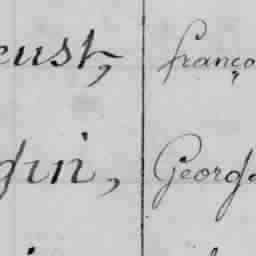 eust, franço
gin, George